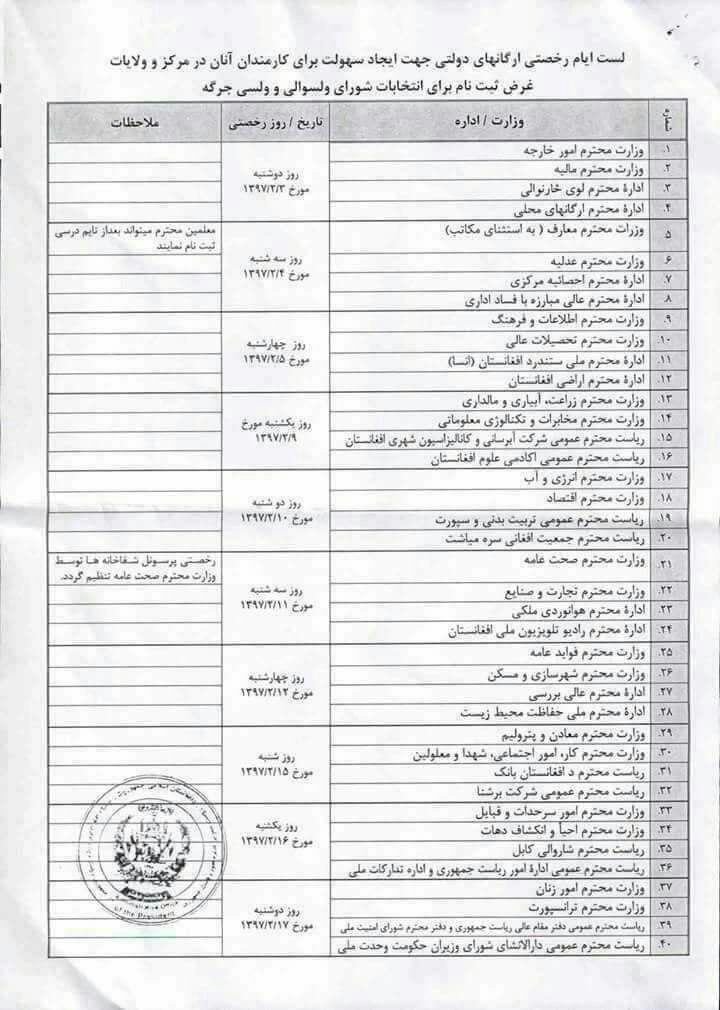 لست ایام رخصتی ارگانهای دولتی جهت ایجاد سهولت برای کارمندان آنان در مرکز و ولایات
غرض ثبت نام برای انتخابات شورای ولسوالی و ولسی جرگه
شماره وزارت / اداره تاریخ / روز رخصتی ملاحظات
۱. وزارت محترم امور خارجه
۲. وزارت محترم مالیه
روز دوشنبه
مورخ ۱۳۹۷/۲/۳
۳. ادارهٔ محترم لوی څارنوالی
۴. ادارهٔ محترم ارگانهای محلی
۵. وزرات محترم معارف ( به استثنای مکاتب)
معلمین محترم میتواند بعداز تایم درسی
ثبت نام نمایند
۶. وزارت محترم عدلیه
روز سه شنبه
مورخ ۱۳۹۷/۲/۴
۷. ادارهٔ محترم احصائیه مرکزی
۸. ادارهٔ محترم عالی مبارزه با فساد اداری
۹. وزارت محترم اطلاعات و فرهنگ
۱۰. وزارت محترم تحصیلات عالی
روز چهارشنبه
مورخ ۱۳۹۷/۲/۵
۱۱. ادارهٔ محترم ملی ستندرد افغانستان (انسا)
۱۲. ادارهٔ محترم اراضی افغانستان
۱۳. وزارت محترم زراعت، آبیاری و مالداری
۱۴. وزارت محترم مخابرات و تکنالوژی معلوماتی
روز یکشنبه مورخ
۱۳۹۷/۲/۹
۱۵. ریاست محترم عمومی شرکت آبرسانی و کانالیزاسیون شهری افغانستان
۱۶. ریاست محترم عمومی اکادمی علوم افغانستان
۱۷. وزارت محترم انرژی و آب
۱۸. وزارت محترم اقتصاد
روز دو شنبه
مورخ ۱۳۹۷/۲/۱۰
۱۹. ریاست محترم عمومی تربیت بدنی و سپورت
۲۰. ریاست محترم جمعیت افغانی سره میاشت
۲۱. وزارت محترم صحت عامه
رخصتی پرسونل شفاخانه ها توسط
وزارت محترم صحت عامه تنظیم گردد.
۲۲. وزارت محترم تجارت و صنایع
روز سه شنبه
مورخ ۱۳۹۷/۲/۱۱
۲۳. ادارهٔ محترم هوانوردی ملکی
۲۴. ادارهٔ محترم رادیو تلویزیون ملی افغانستان
۲۵. وزارت محترم فواید عامه
۲۶. وزارت محترم شهرسازی و مسکن
روز چهارشنبه
مورخ ۱۳۹۷/۲/۱۲
۲۷. ادارهٔ محترم عالی بررسی
۲۸. ادارهٔ محترم ملی حفاظت محیط زیست
۲۹. وزارت محترم معادن و پترولیم
۳۰. وزارت محترم کار، امور اجتماعی، شهدا و معلولین
روز شنبه
مورخ ۱۳۹۷/۲/۱۵
۳۱. ریاست محترم د افغانستان بانک
۳۲. ریاست محترم عمومی شرکت برشنا
۳۳. وزارت محترم امور سرحدات و قبایل
۳۴. وزارت محترم احیا و انکشاف دهات
روز یکشنبه
مورخ ۱۳۹۷/۲/۱۶
۳۵. ریاست محترم شاروالی کابل
۳۶. ریاست محترم عمومی ادارهٔ امور ریاست جمهوری و اداره تدارکات ملی
۳۷. وزارت محترم امور زنان
۳۸. وزارت محترم ترانسپورت
روز دوشنبه
مورخ ۱۳۹۷/۲/۱۷
۳۹. ریاست محترم عمومی دفتر مقام عالی ریاست جمهوری و دفتر محترم شورای امنیت ملی
۴۰. ریاست محترم عمومی دارالانشای شورای وزیران حکومت وحدت ملی
Administrative Office
of the President